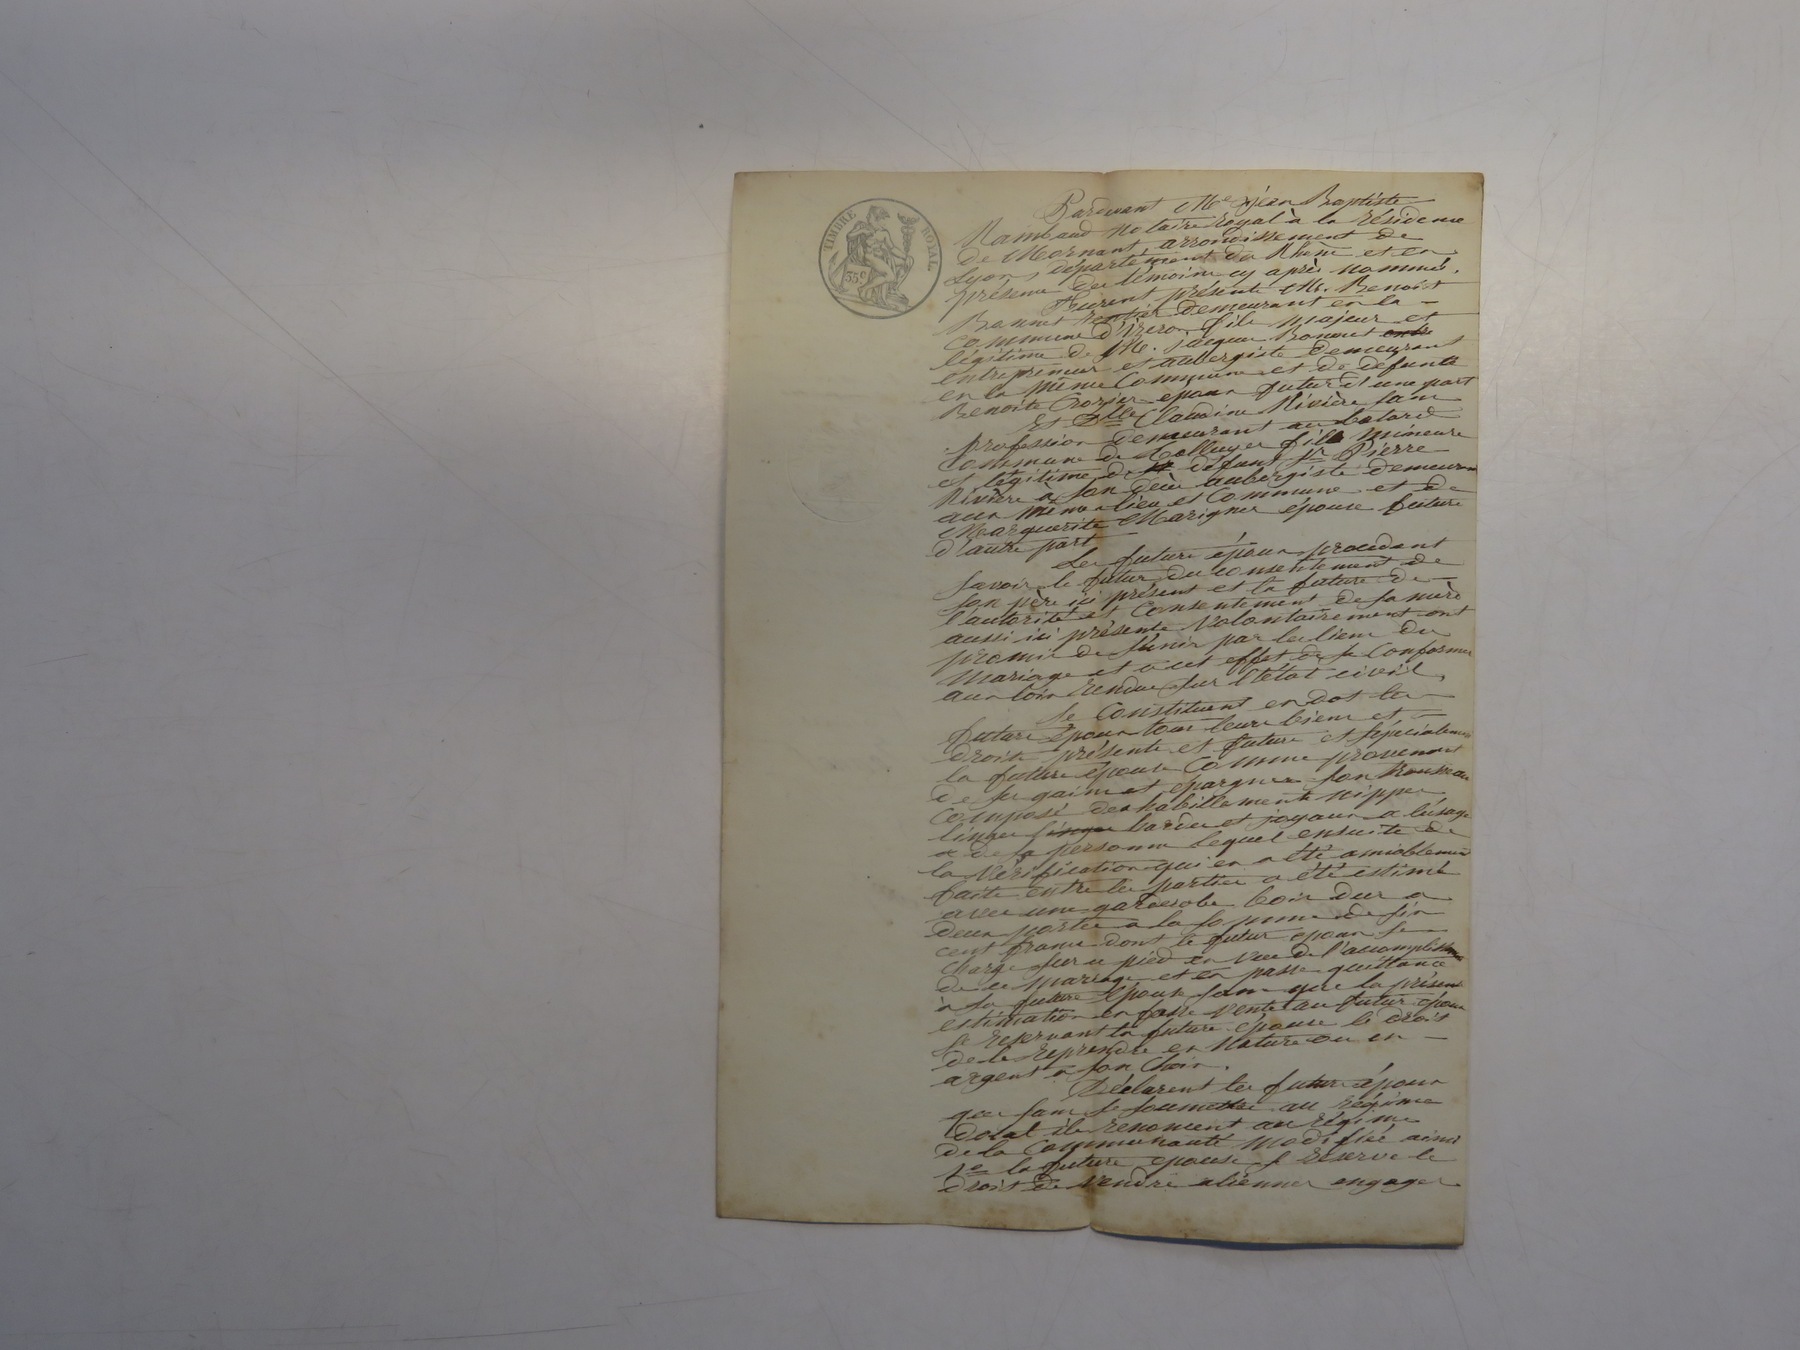 TIMBRE ROYAL
35c
Pardevant Me Jéan Baptiste
Rambaud Notaire royal à la résidence
de Mornant, arrondissement de
Lyon, département du Rhône et en
présence des témoins cy après nommés.
Furent présents M. Benoist
Bonnet rentier demeurant en la
commune d'Yzeron, fils majeur et
légitime de M. Jacques Bonnet
entrepreneur et aubergiste demeurant
en la même Commune et de defunte
Benoite Crozier epoux futur d'une part
Et Dlle Claudine Rivière sans
profession demeurant au
Commune de fille mineure
et légitime de défunt Sr Pierre
Rivière à son decès aubergiste demeurant
aux mêmes lieu et Commune et de
Marguerite Marigner épouse future
d'autre part
Les futurs époux procédant
savoir le futur du consentement de
son père ici présent et la future de
l'autorité et consentement de sa mère
aussi ici présente volontairement ont
promis de s'unir par les liens du
mariage et à cet effet de se conformer
aux loix rendues sur l'état civil,
Se Constituent en dot les
futurs époux tous leurs biens et
droits présents et futurs et spécialement
la future épouse Comme provenant
de ses gains et épargnes son trousseau
Composé des habillements nippes
linges linges hardes et joyaux a l'usage
de sa personne lequel ensuite de
la vérification qui en a été amiablement
faite entre les parties a été estimé
avec une garderobe bois dur a
deux portes a la somme de six
cent francs dont le futur epoux se
charge sur ce pied en vue de l'accomplissement
de ce mariage et en passe quittance
à sa future épouse sans que la présente
estimation en fasse vente au futur époux
se reservant la future épouse le droit
de le reprendre en Nature ou en
argent a son Choix,
Déclarent les futurs époux
que sans se soumettre au régime
dotal ils renoncent au régime
de la Communauté modifiée ainsi
1o la future epouse se réserve le
droit de vendre aliénner engager